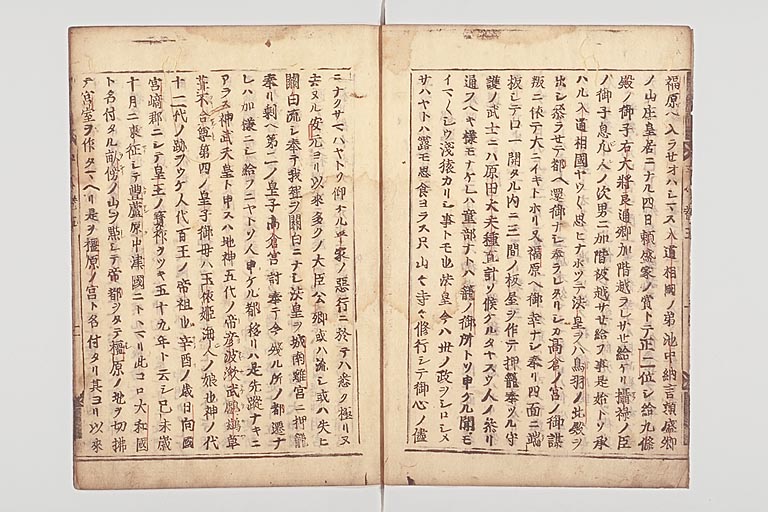 福原ヘ入ラセオハシマス入道相國ノ弟池中納言頼盛卿
ノ山庄皇居ニナル四日頼盛家ノ賞トテ正二位シ給九條
殿ノ御子右大將良通卿加階越ラレサセ給ケリ攝祿ノ臣
ノ御子息凡人ノ次男ニ加階被越サセ給フ事是始トソ承
ハル入道相國ヤウ〱思ヒナホツテ法皇ヲハ鳥羽ノ北殿ヲ
出シ奉ラセテ都ヘ還御ナシ奉ラレタリシカ高倉ノ宮ノ御謀
叛ニ依テ大ニイキトホリ又福原ヘ御幸ナシ奉リ四面ニ端
板シテ口一開タル内ニ三間ノ板屋ヲ作テ押籠奉ツル守
護ノ武士ニハ原田大夫種直計ソ候ケルタヤスウ人ノ參リ
通フヘキ樣モナケレハ童部ナトハ籠ノ御所トソ申ケル聞モ
イマ〱シウ淺猿カリシ事トモ也法皇今ハ世ノ政ヲシロシメ
サハヤトハ露モ思食ヨラス只山々寺々修行シテ御心ノ儘
ニナクサマハヤトソ御ケル平家ノ惡行ニ於テハ悉ク極リヌ
去ヌル安元ヨリ以來多クノ大臣公卿或ハ流シ或ハ失ヒ
關白流シ奉テ我聟ヲ關白ニナシ法皇ヲ城南離宮ニ押籠
奉リ剩ヘ第二ノ皇子高倉宮討奉テ今殘ル所ノ都遷ナ
レハ加樣ニシ給フニヤトソ人申ケル都移リハ是先蹤ナキニ
アラス神武天皇ト申スハ地神五代ノ帝彦波瀲武鸕鷀草
葺不合尊第四ノ皇子御母ハ玉依姫海人ノ娘也神ノ代
十二代ノ跡ヲウケ人代百王ノ帝祖也辛酉ノ歳日向國
宮崎郡ニシテ皇王ノ寳祚ヲツキ五十九年ト云シ己未歳
十月ニ東征シテ豐葦原中津國ニトヽマリ此コロ大和國
ト名付タル畝傍ノ山ヲ點シテ帝都ヲタテ橿原ノ地ヲ切掃
テ宮室ヲ作タマヘリ是ヲ橿原ノ宮ト名付タリ其ヨリ以來